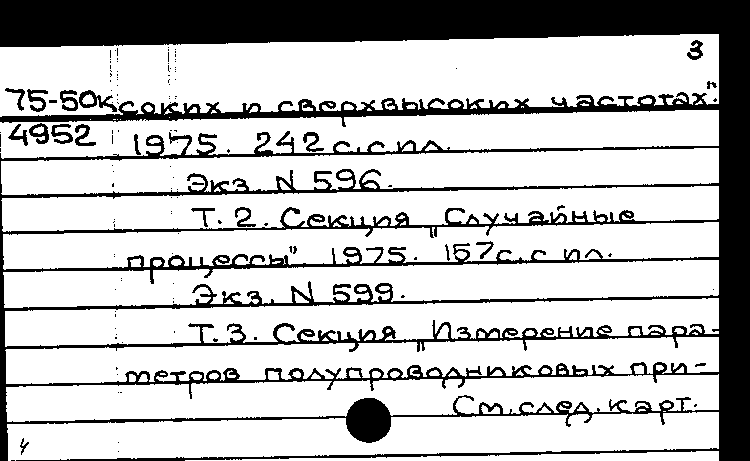 3
75-50к соких и сверхвысоких частотах".
4952 1975. 242 с. с ил.
Экз. N 596.
Т. 2. Секция „Случайные
процессы". 1975. 157 с. с ил.
Экз. N 599.
Т. 3. Секция „Измерение пара-
метров полупроводниковых при-
См. след. карт.
4